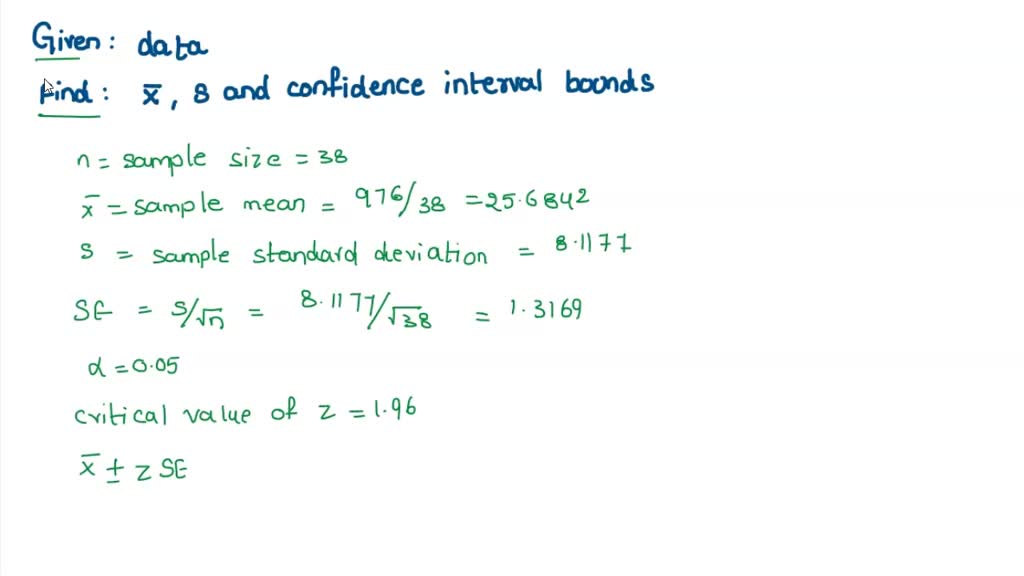 Given: data
Find: x̄, s and confidence interval bounds
n = sample size = 38
x̄ = sample mean = 976/38 = 25.6842
s = sample standard deviation = 8.1177
SE = s/√n = 8.1177/√38 = 1.3169
α = 0.05
critical value of z = 1.96
x̄ ± z SE